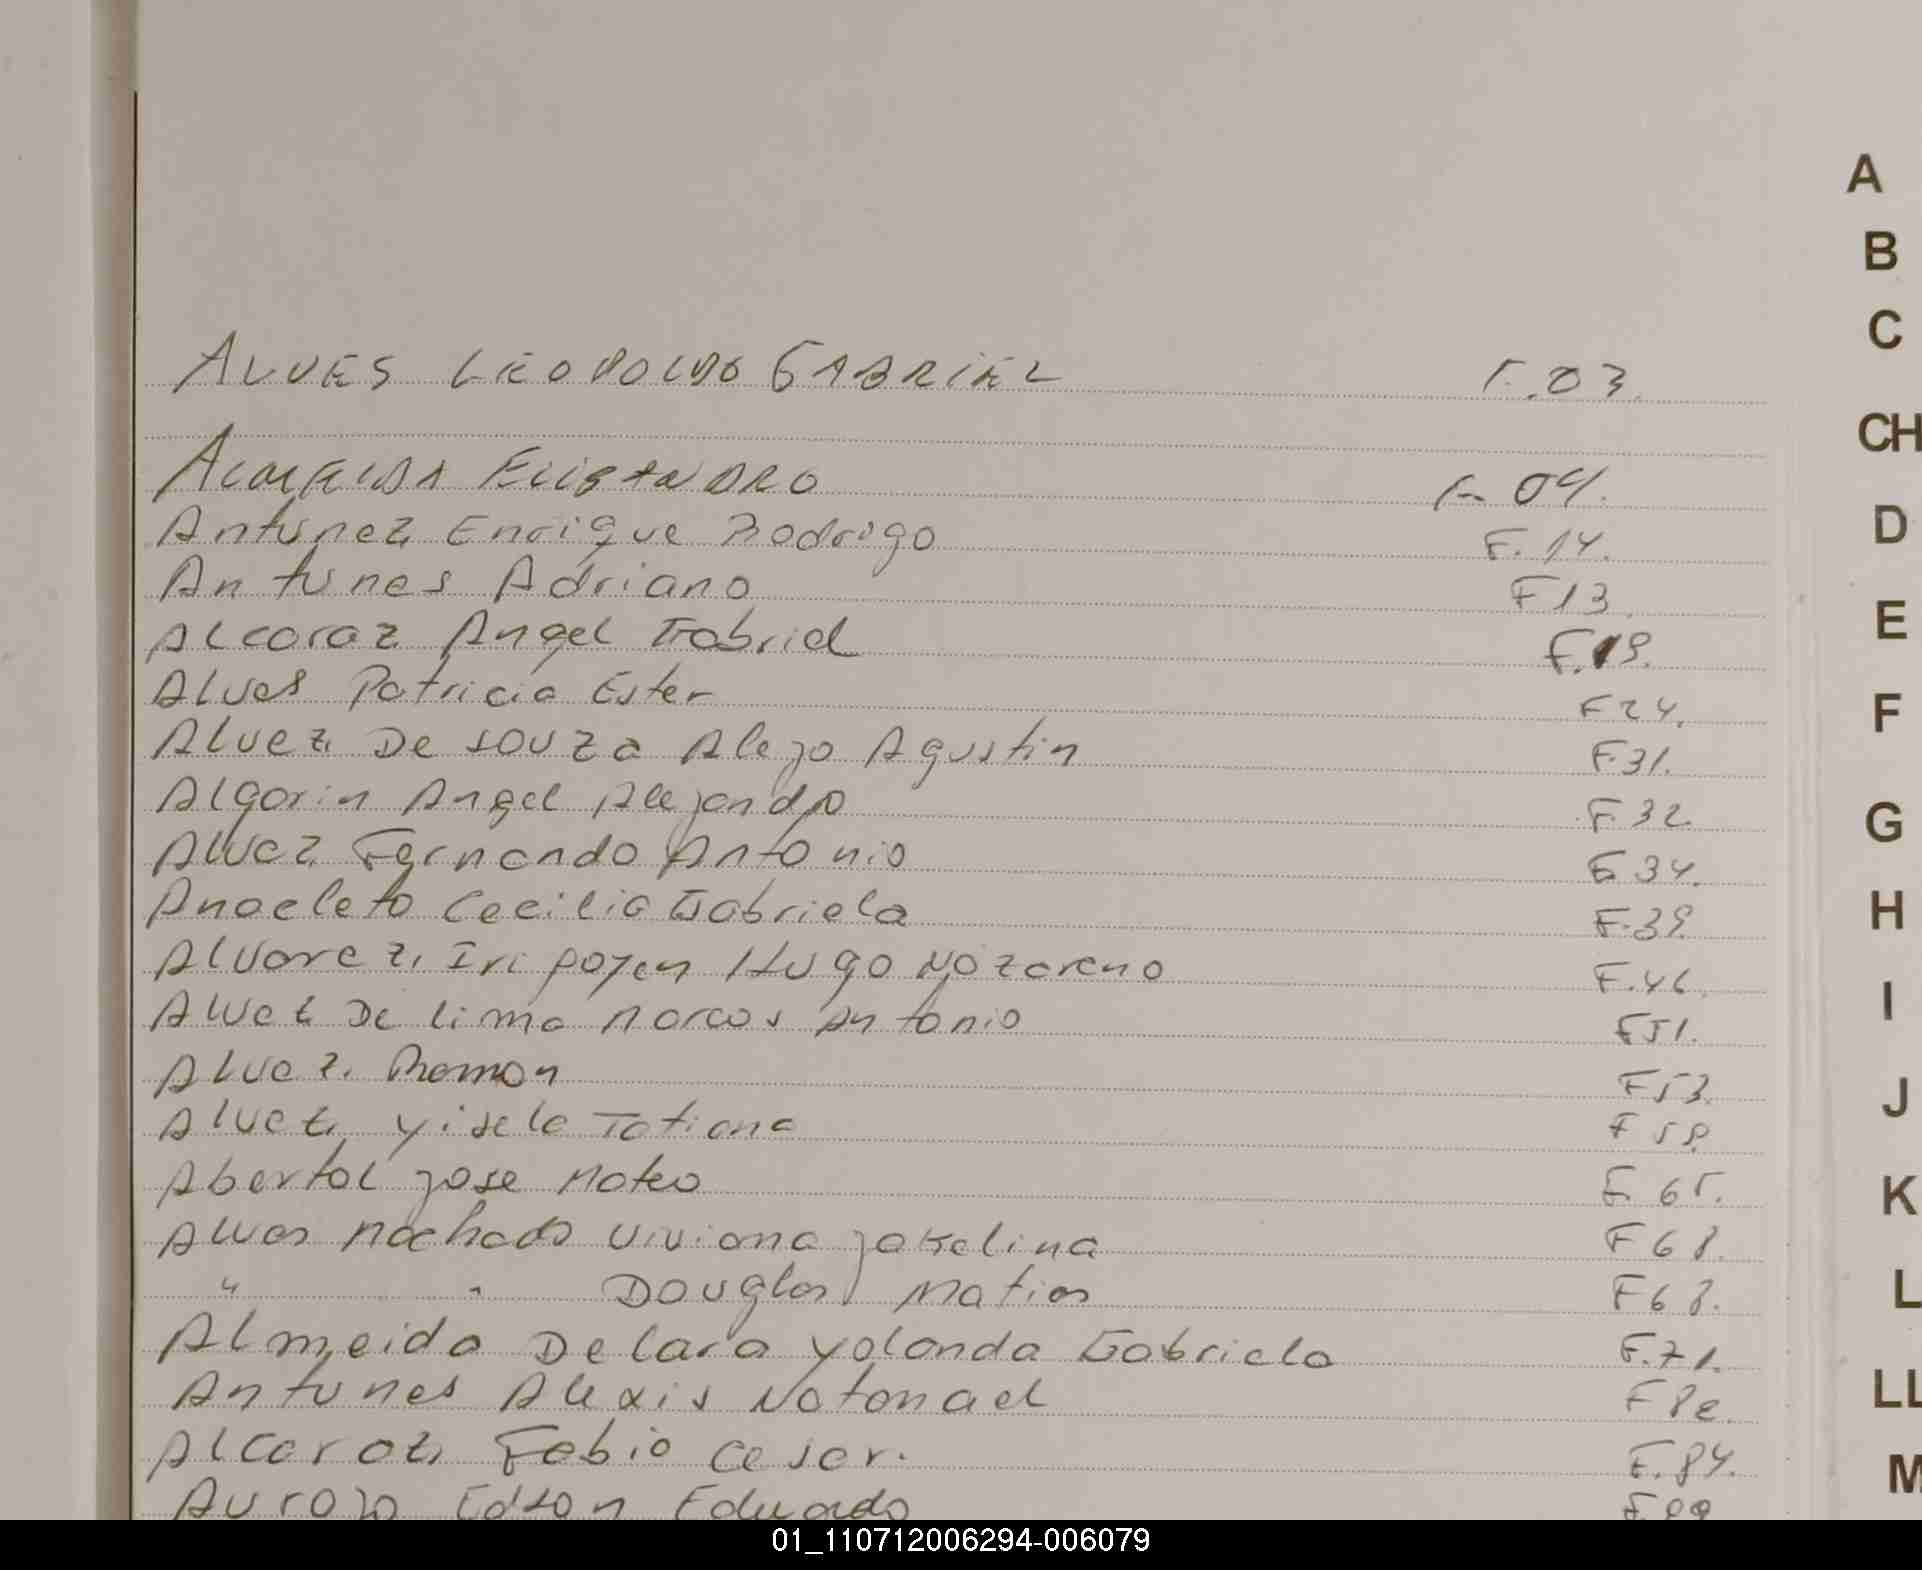 ALVES LEOPOLDO GABRIEL F.03.
ALMEIDA ELISANDRO F. 04.
Antunez Enrique Rodrigo F. 14.
Antunes Adriano F13.
Alcaraz Angel Gabriel F.19.
Alves Patricia Ester F24.
Alvez De souza Alejo Agustin F.31.
Algarin Angel Alejandro F.32.
Alvez Fernando Antonio F.34.
Anacleto Cecilia Gabriela F.39.
Alvarez Irigoyen Hugo Nazareno F.46.
Alvez De lima Marcos Antonio F51.
Alvez Ramon F53.
Alvez Yisela Tatiana F 58.
Abertal Jose Mateo F. 65.
Alves Machado Viviana Jakelina F68.
" " Douglas Matias F68.
Almeida De lara Yolanda Gabriela F.71.
Antunes Alexis Natanael
Alcaraz Fabio Cesar. F.84.
Edson Eduardo
A
B
C
CH
D
E
F
G
H
I
J
K
L
LL
M
01_110712006294-006079